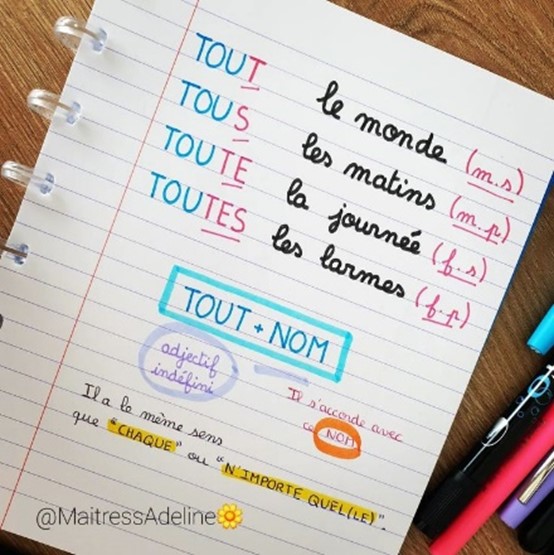 TOUT le monde (m.s)
TOUS les matins (m.p)
TOUTE la journée (f.s)
TOUTES les larmes (f.p)
TOUT + NOM
adjectif
indéfini
Il a le même sens
que "CHAQUE" ou "N'IMPORTE QUEL(LE)".
Il s'accorde avec
ce NOM
@MaitressAdeline🌼